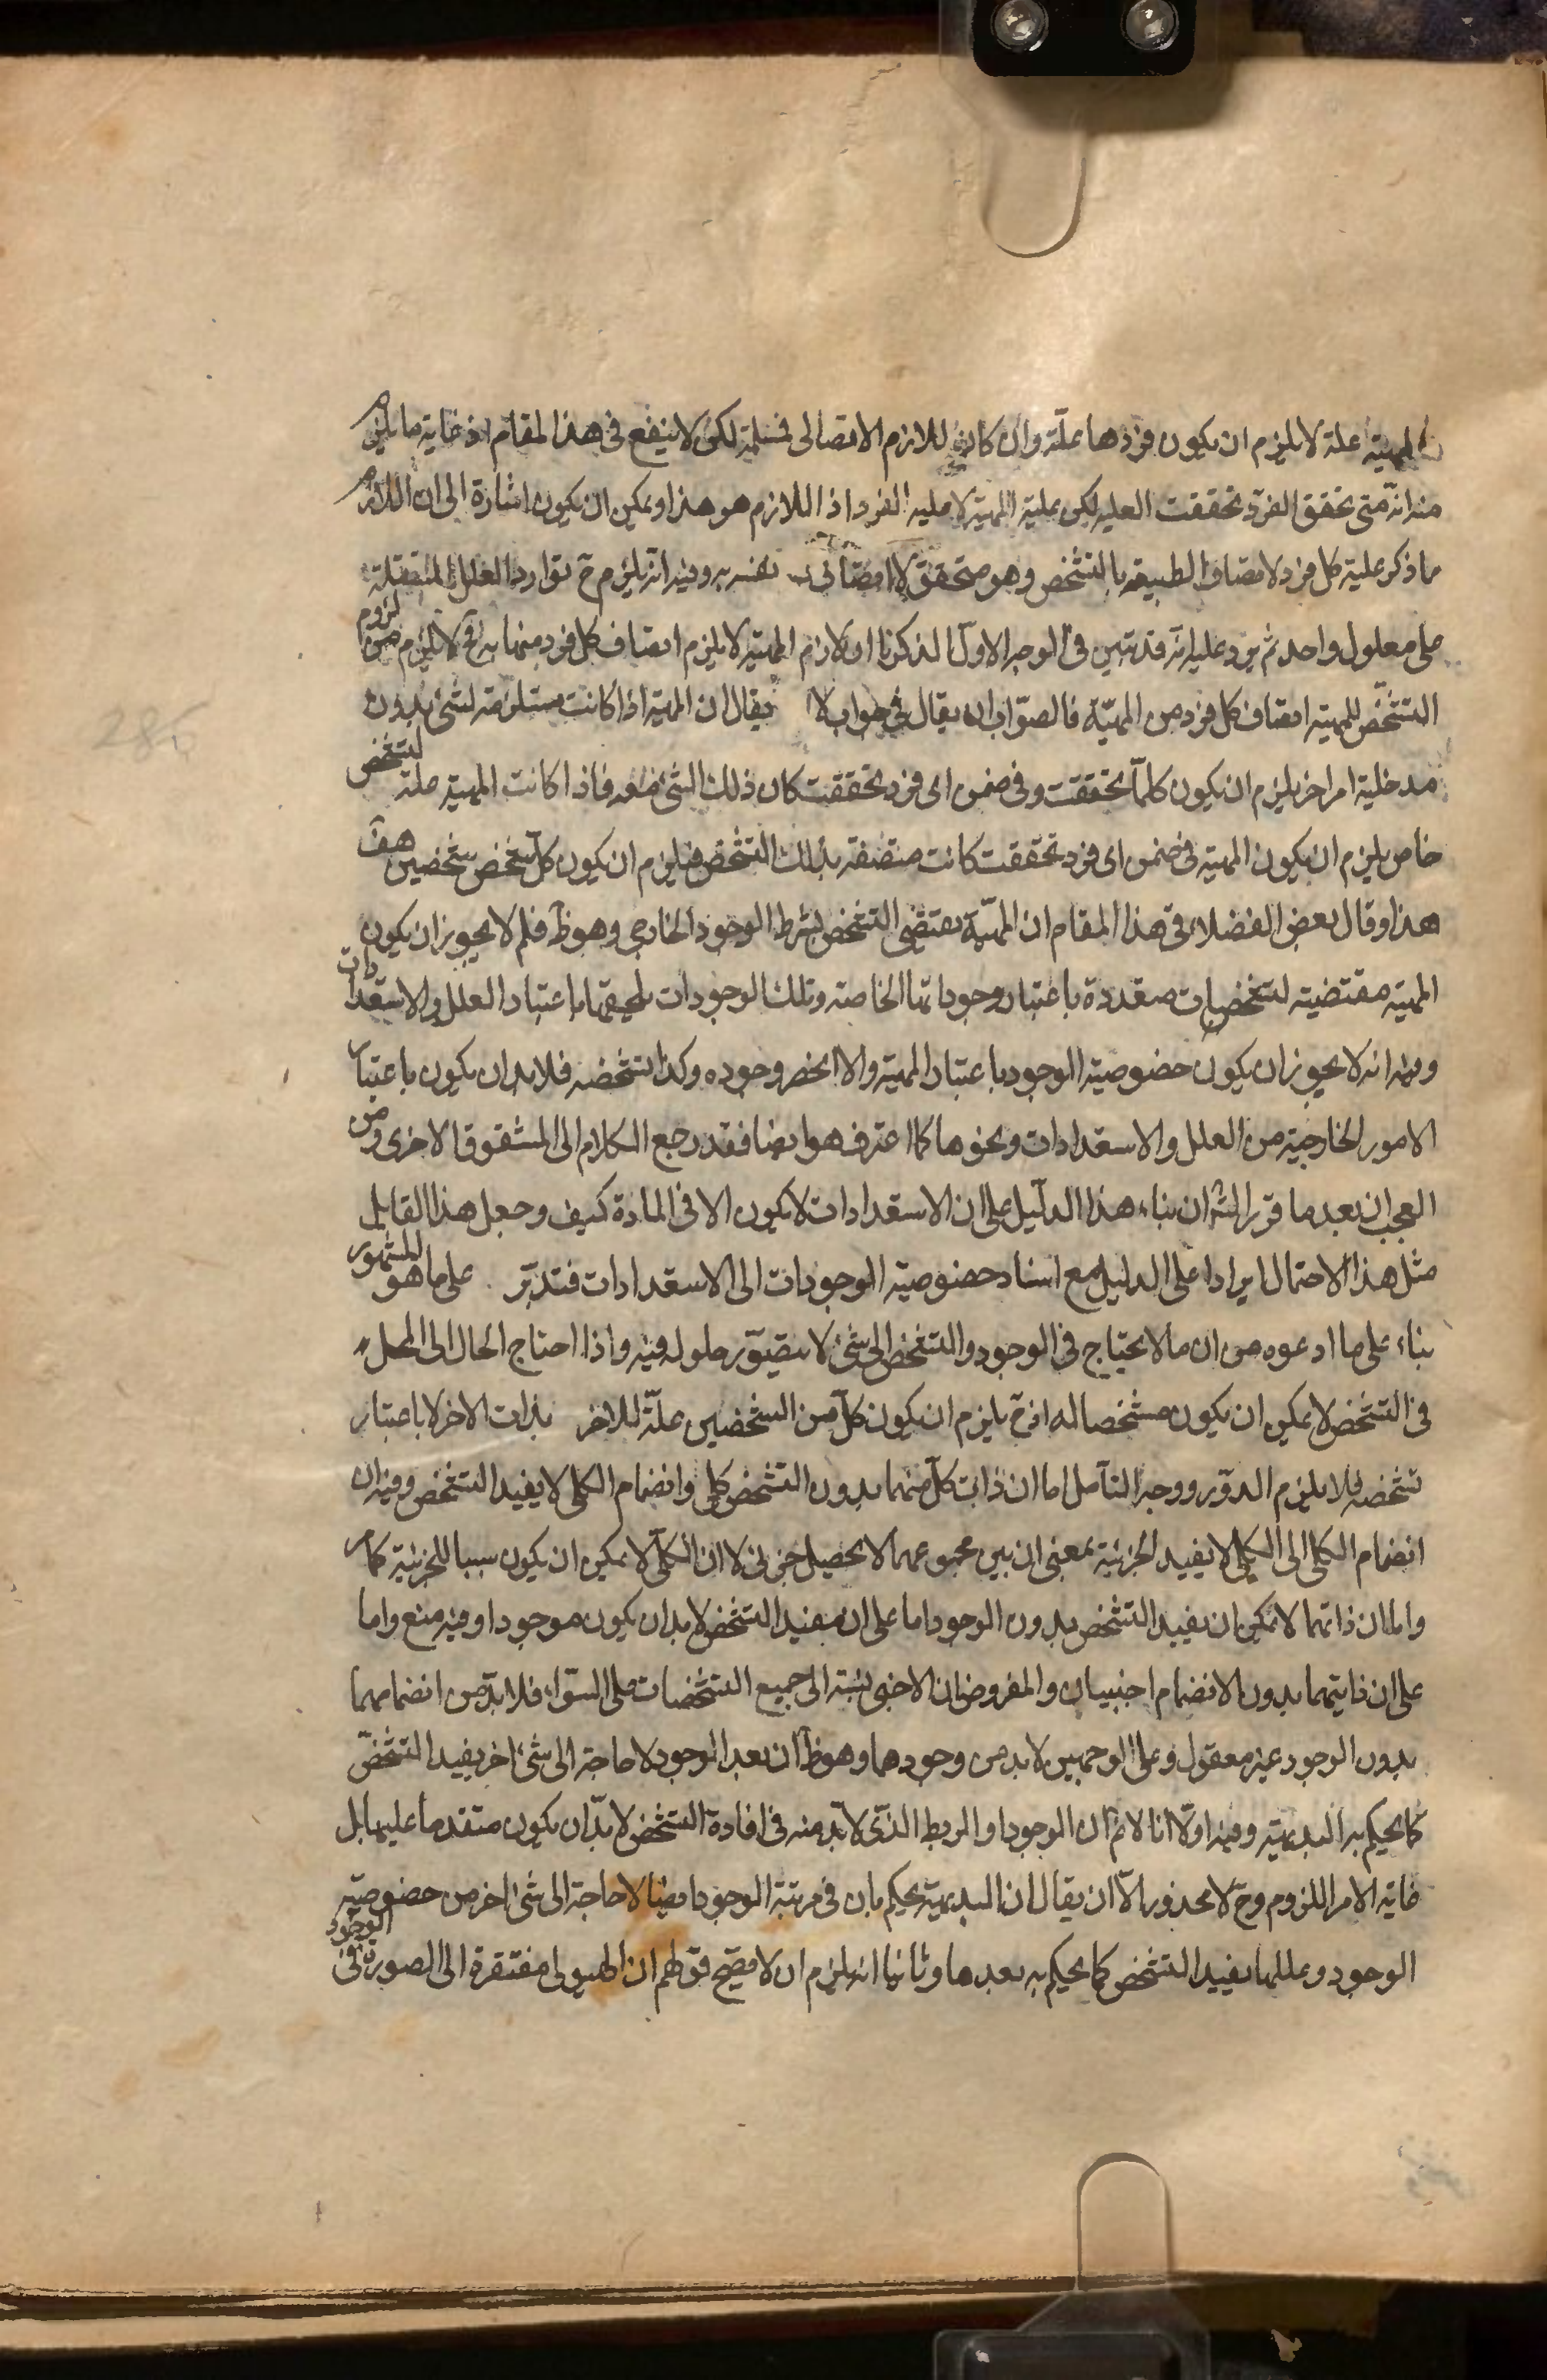 المهية علة لا يلزم ان يكون فردها علّة وان كان اللازم الاتصالى فسلمة لكن لا ينفع فى هذا المقام اذ غاية ما يلزم
منه انّه متى تحقق الفرد تحققت العليه لكن علية المهية لا علية الفرد اذ اللازم هو هذا ويمكن ان يكون اشارة الى ان اللازم
ما ذكر علية كل فرد لاتصاف الطبيعة بالتشخص وهو متحقق لا اتصافى نفسه به وفيه انه يلزم ح توارد العلل المستقلة
على معلول واحد ثم يرد عليه انه قد تبين فى الوجه الاول الذكرنا ان لازم المهية لا يلزم اتصاف كل فرد منها به فح لا يلزم من لزوم
التشخّص للمهية اتصاف كل فرد من المهيّة فالصوّاب ان يقال فى جواب لا يقال ان المهية اذا كانت مستلزمة لشئ بدون
مدخلية امر اخر يلزم ان يكون كلما تحققت وفى ضمن اى فرد تحققت كان ذلك الشئ معه فاذا كانت المهية علة لتشخص
خاص يلزم ان يكون المهية فى ضمن اى فرد تحققت كانت متصفة بذلك التشخص فيلزم ان يكون كل شخص شخصين هف
هذا وقال بعض الفضلاء فى هذا المقام ان المهيّة يقتضى التشخص بشرط الوجود الخارجى وهو ظ فلم لا يجوز ان يكون
المهية مقتضية لتشخصات متعددة باعتبار وجوداتها الخاصة وتلك الوجودات يلحقها باعتبار العلل والاستعدادات
وفيه انه لا يجوز ان يكون خصوصية الوجود باعتبار المهية والا انحصر وجوده وكذا تشخصه فلا بد ان يكون باعتبار
الامور الخارجية من العلل والاستعدادات ونحوها كما اعترف هو ايضا فقد رجع الكلام الى الشقوق الاخرى ومن
العجب ان بعد ما قرر الش ان بناء هذا الدليل على ان الاستعدادات لا يكون الا فى المادة كيف وجعل هذا القايل
مثل هذا الاحتمال ايرادا على الدليل مع اسناد خصوصية الوجودات الى الاستعدادات فتدبّر على ما هو المشهور
بناء على ما ادعوه من ان ما لا يحتاج فى الوجود والتشخص الى شئ لا يتصوّر حلوله فيه واذا احتاج الحال الى المحل
فى التشخص لا يمكن ان يكون مشخصا له اذ ح يلزم ان يكون كل من الشخصين علّة للاخر بذات الاخر لا باعتبار
تشخصه فلا يلزم الدوّر ووجه التأمل اما ان ذات كل منهما بدون التشخص كلى وانضمام الكلى لا يفيد التشخص وفيه ان
انضمام الكلى الى الكلى لا يفيد الجزئية بمعنى ان بين مجموعهما لا يحصل جزئى لا ان الكلى لا يمكن ان يكون سببا للجزئية كما مر
واما ان ذاتهما لا يمكن ان يفيد التشخص بدون الوجود اما على ان مفيد التشخص لا بد ان يكون موجودا وفيه منع واما
على ان ذاتيهما بدون الانضمام اجنبيان والمفروض ان الاجنبى نسبته الى جميع التشخصات على السوّاء فلا بدّ من انضمامهما
بدون الوجود غير معقول وعلى الوجهين لا بد من وجودهما وهو ظ ان بعد الوجود لا حاجة الى شئ اخر يفيد التشخّص
كما يحكم به البديهية وفيه اولا انا لا نم ان الوجود او الربط الذى لا بد منه فى افادة التشخص لا بدّ ان يكون متقدما عليها بل
غاية الامر اللزوم وح لا محذور الّا ان يقال ان البديهية يحكم بان فى مرتبة الوجود ايضا لا حاجة الى شئ اخر من خصوصية
الوجود وعللها يفيد التشخص كما يحكم به بعدها وثانيا انه يلزم ان لا يصّح قولهم ان الهيولى مفتقرة الى الصورة فى الوجود